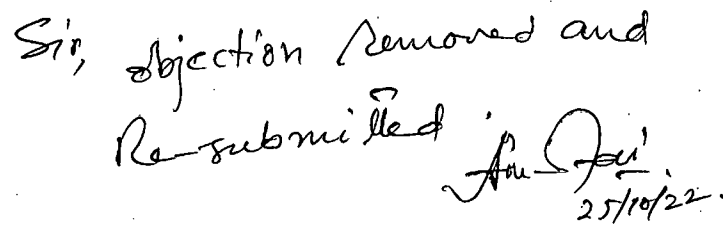 Sir, objection removed and
Re-submitted
25/10/22.